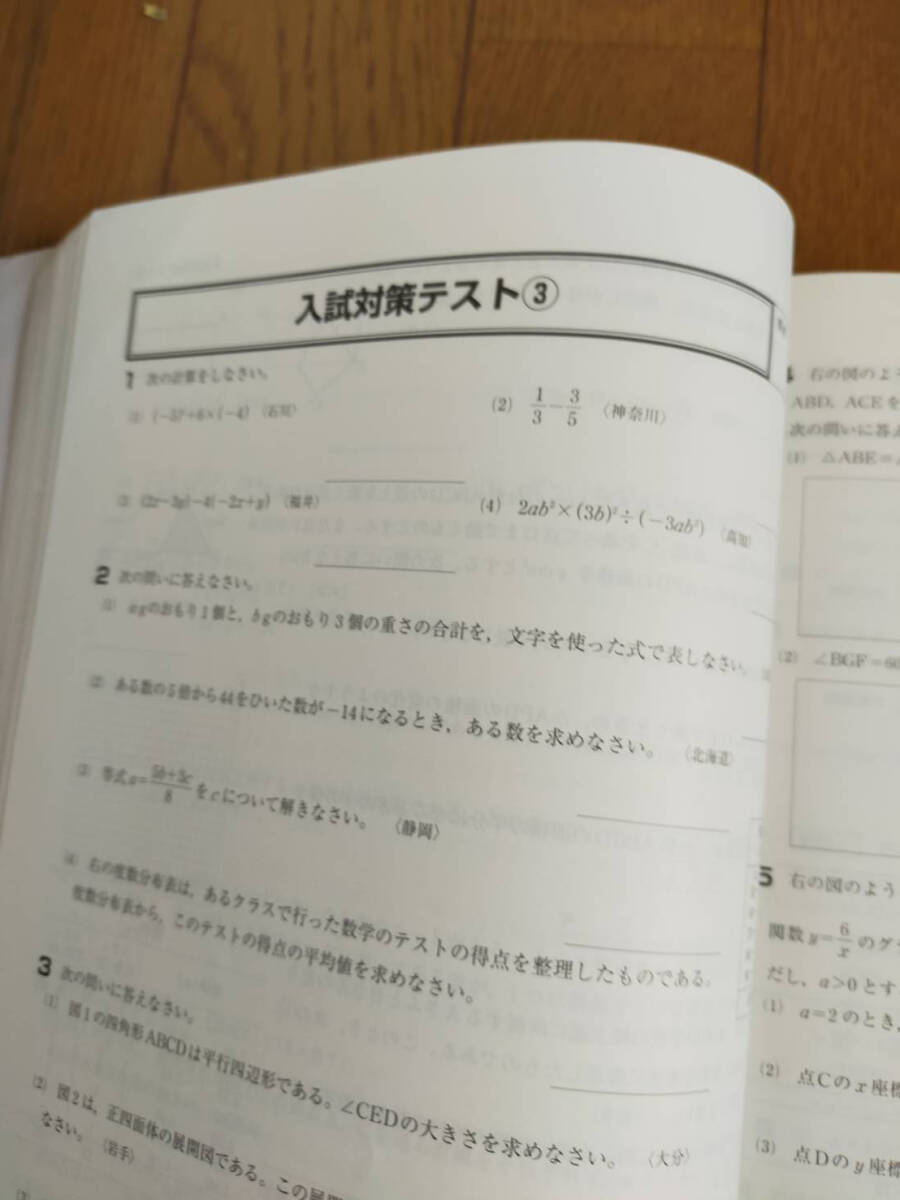 入試対策テスト③
1 次の計算をしなさい。
(1) (−5)²+6×(−4) 〈石川〉
(2) 1/3−3/5 〈神奈川〉
(3) (2x−3y)−4(−2x+y) 〈福井〉
(4) 2ab²×(3b)²÷(−3ab²) 〈高知〉
2 次の問いに答えなさい。
(1) agのおもり1個と，bgのおもり3個の重さの合計を，文字を使った式で表しなさい。
(2) ある数の5倍から44をひいた数が−14になるとき，ある数を求めなさい。 〈北海道〉
(3) 等式a=5b+3c/8をcについて解きなさい。 〈静岡〉
(4) 右の度数分布表は，あるクラスで行った数学のテストの得点を整理したものである。
度数分布表から，このテストの得点の平均値を求めなさい。
3 次の問いに答えなさい。
(1) 図1の四角形ABCDは平行四辺形である。∠CEDの大きさを求めなさい。 〈大分〉
(2) 図2は，正四面体の展開図である。この展開
なさい。 〈岩手〉
4 右の図のよう
ABD，ACEを
次の問いに答え
(1) △ABE≡
(2) ∠BGF=60
5 右の図のよう
関数y=6/xのグ
だし，a>0とす
(1) a=2のとき，
(2) 点Cのx座標
(3) 点Dのy座標